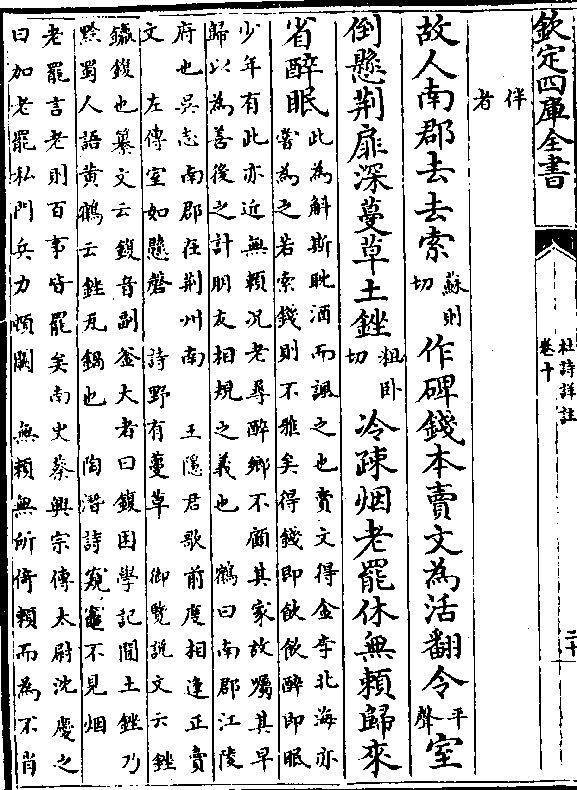 欽定四庫全書
杜詩詳註
卷十
二十
伴
者
故人南郡去去索蘇則切作碑錢本賣文為活翻令平聲室
倒懸荆扉深蔓草土銼粗卧切冷疎烟老罷休無賴歸來
省醉眠
此為斛斯耽酒而諷之也賣文得金李北海亦
嘗為之若索錢則不雅矣得錢即飲飲醉即眠
少年有此亦近無賴况老尋醉鄉不顧其家故囑其早
歸以為善後之計朋友相規之義也 鶴曰南郡江陵
府也吳志南郡在荆州南 王隱君歌前度相逢正賣
文 左傳室如懸磬 詩野有蔓草 御覽説文云銼
䥯鍑也纂文云鍑音副釜大者曰鍑困學記聞土銼乃
黔蜀人語黄鶴云銼瓦鍋也 陶潛詩窺竈不見烟
老罷言老則百事皆罷矣南史蔡興宗傳太尉沈慶之
曰加老罷私門兵力頓闕 無賴無所倚賴而為不肖